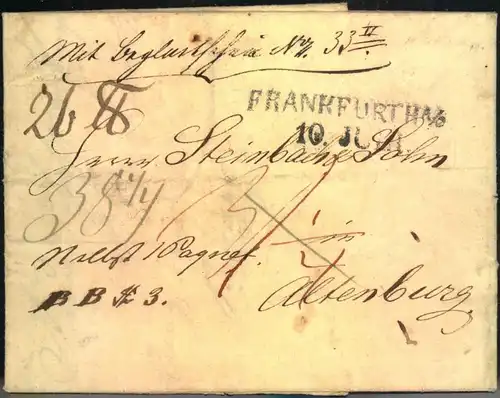 Mit Begleitschein No. 33 II
26 ℔
FRANKFURT A/O
10 JUN
Herrn Steinbachs Sohn
38 1/4
in
Nebst 1 Paquet
B B & 3.
Altenburg